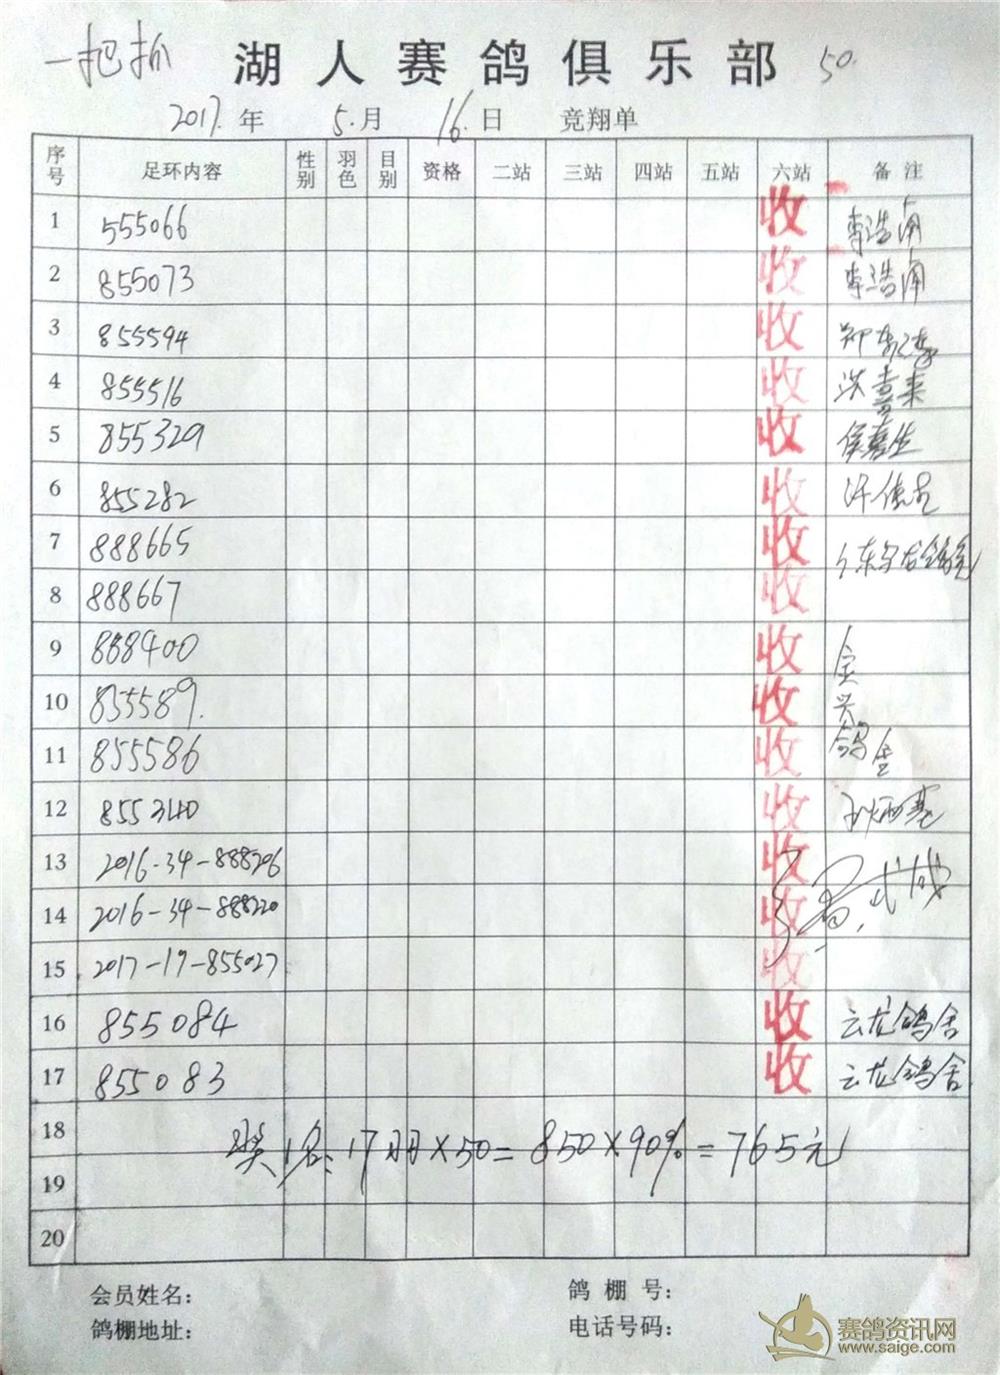 一把抓 湖人赛鸽俱乐部 50.
2017.年 5.月 16.日 竞翔单
序号 足环内容 性别 羽色 目别 资格 二站 三站 四站 五站 六站 备注
1 555066 收 李浩南
2 855073 收 李浩南
3 855594 收
4 855516 收 洪喜来
5 855329 收 侯嘉生
6 855282 收
7 888665 收
8 888667 收
9 888400 收 金
10 855589. 收 兴
11 855586 收 鸽舍
12 855340 收
13 2016-34-888206 收
14 2016-34-888220 收
15 2017-19-855027 收
16 855084 收 云龙鸽舍
17 855083 收 云龙鸽舍
18
奖1名:17羽×50=850×90%=765元
19
20
会员姓名: 鸽棚号:
鸽棚地址: 电话号码:
赛鸽资讯网
www.saige.com